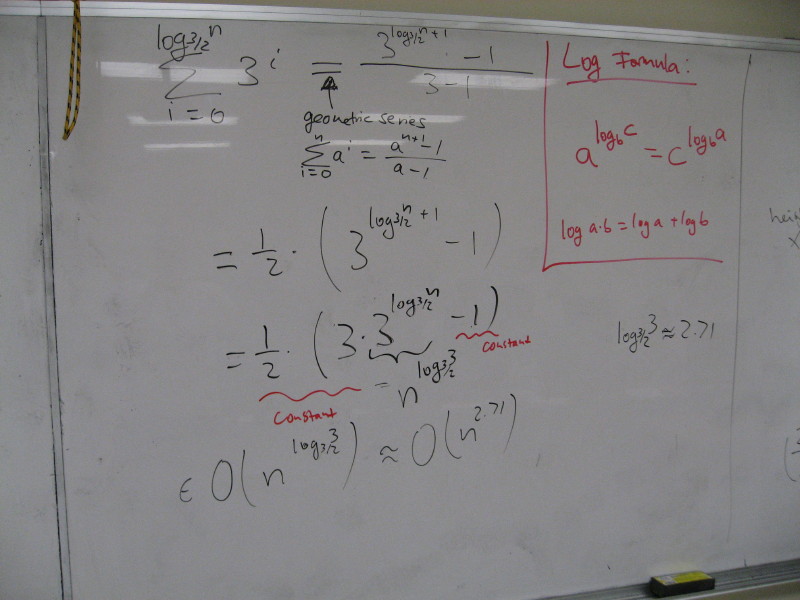 ∑_{i=0}^{log_{3/2} n} 3^i = (3^{log_{3/2} n + 1} - 1) / (3 - 1)
geometric series
∑_{i=0}^{n} a^i = (a^{n+1} - 1) / (a - 1)
= 1/2 · (3^{log_{3/2} n + 1} - 1)
= 1/2 · (3 · 3^{log_{3/2} n} - 1)
constant
= n^{log_{3/2} 3}
constant
∈ O(n^{log_{3/2} 3}) ≈ O(n^{2.71})
Log Formula:
a^{log_b c} = c^{log_b a}
log a·b = log a + log b
log_{3/2} 3 ≈ 2.71